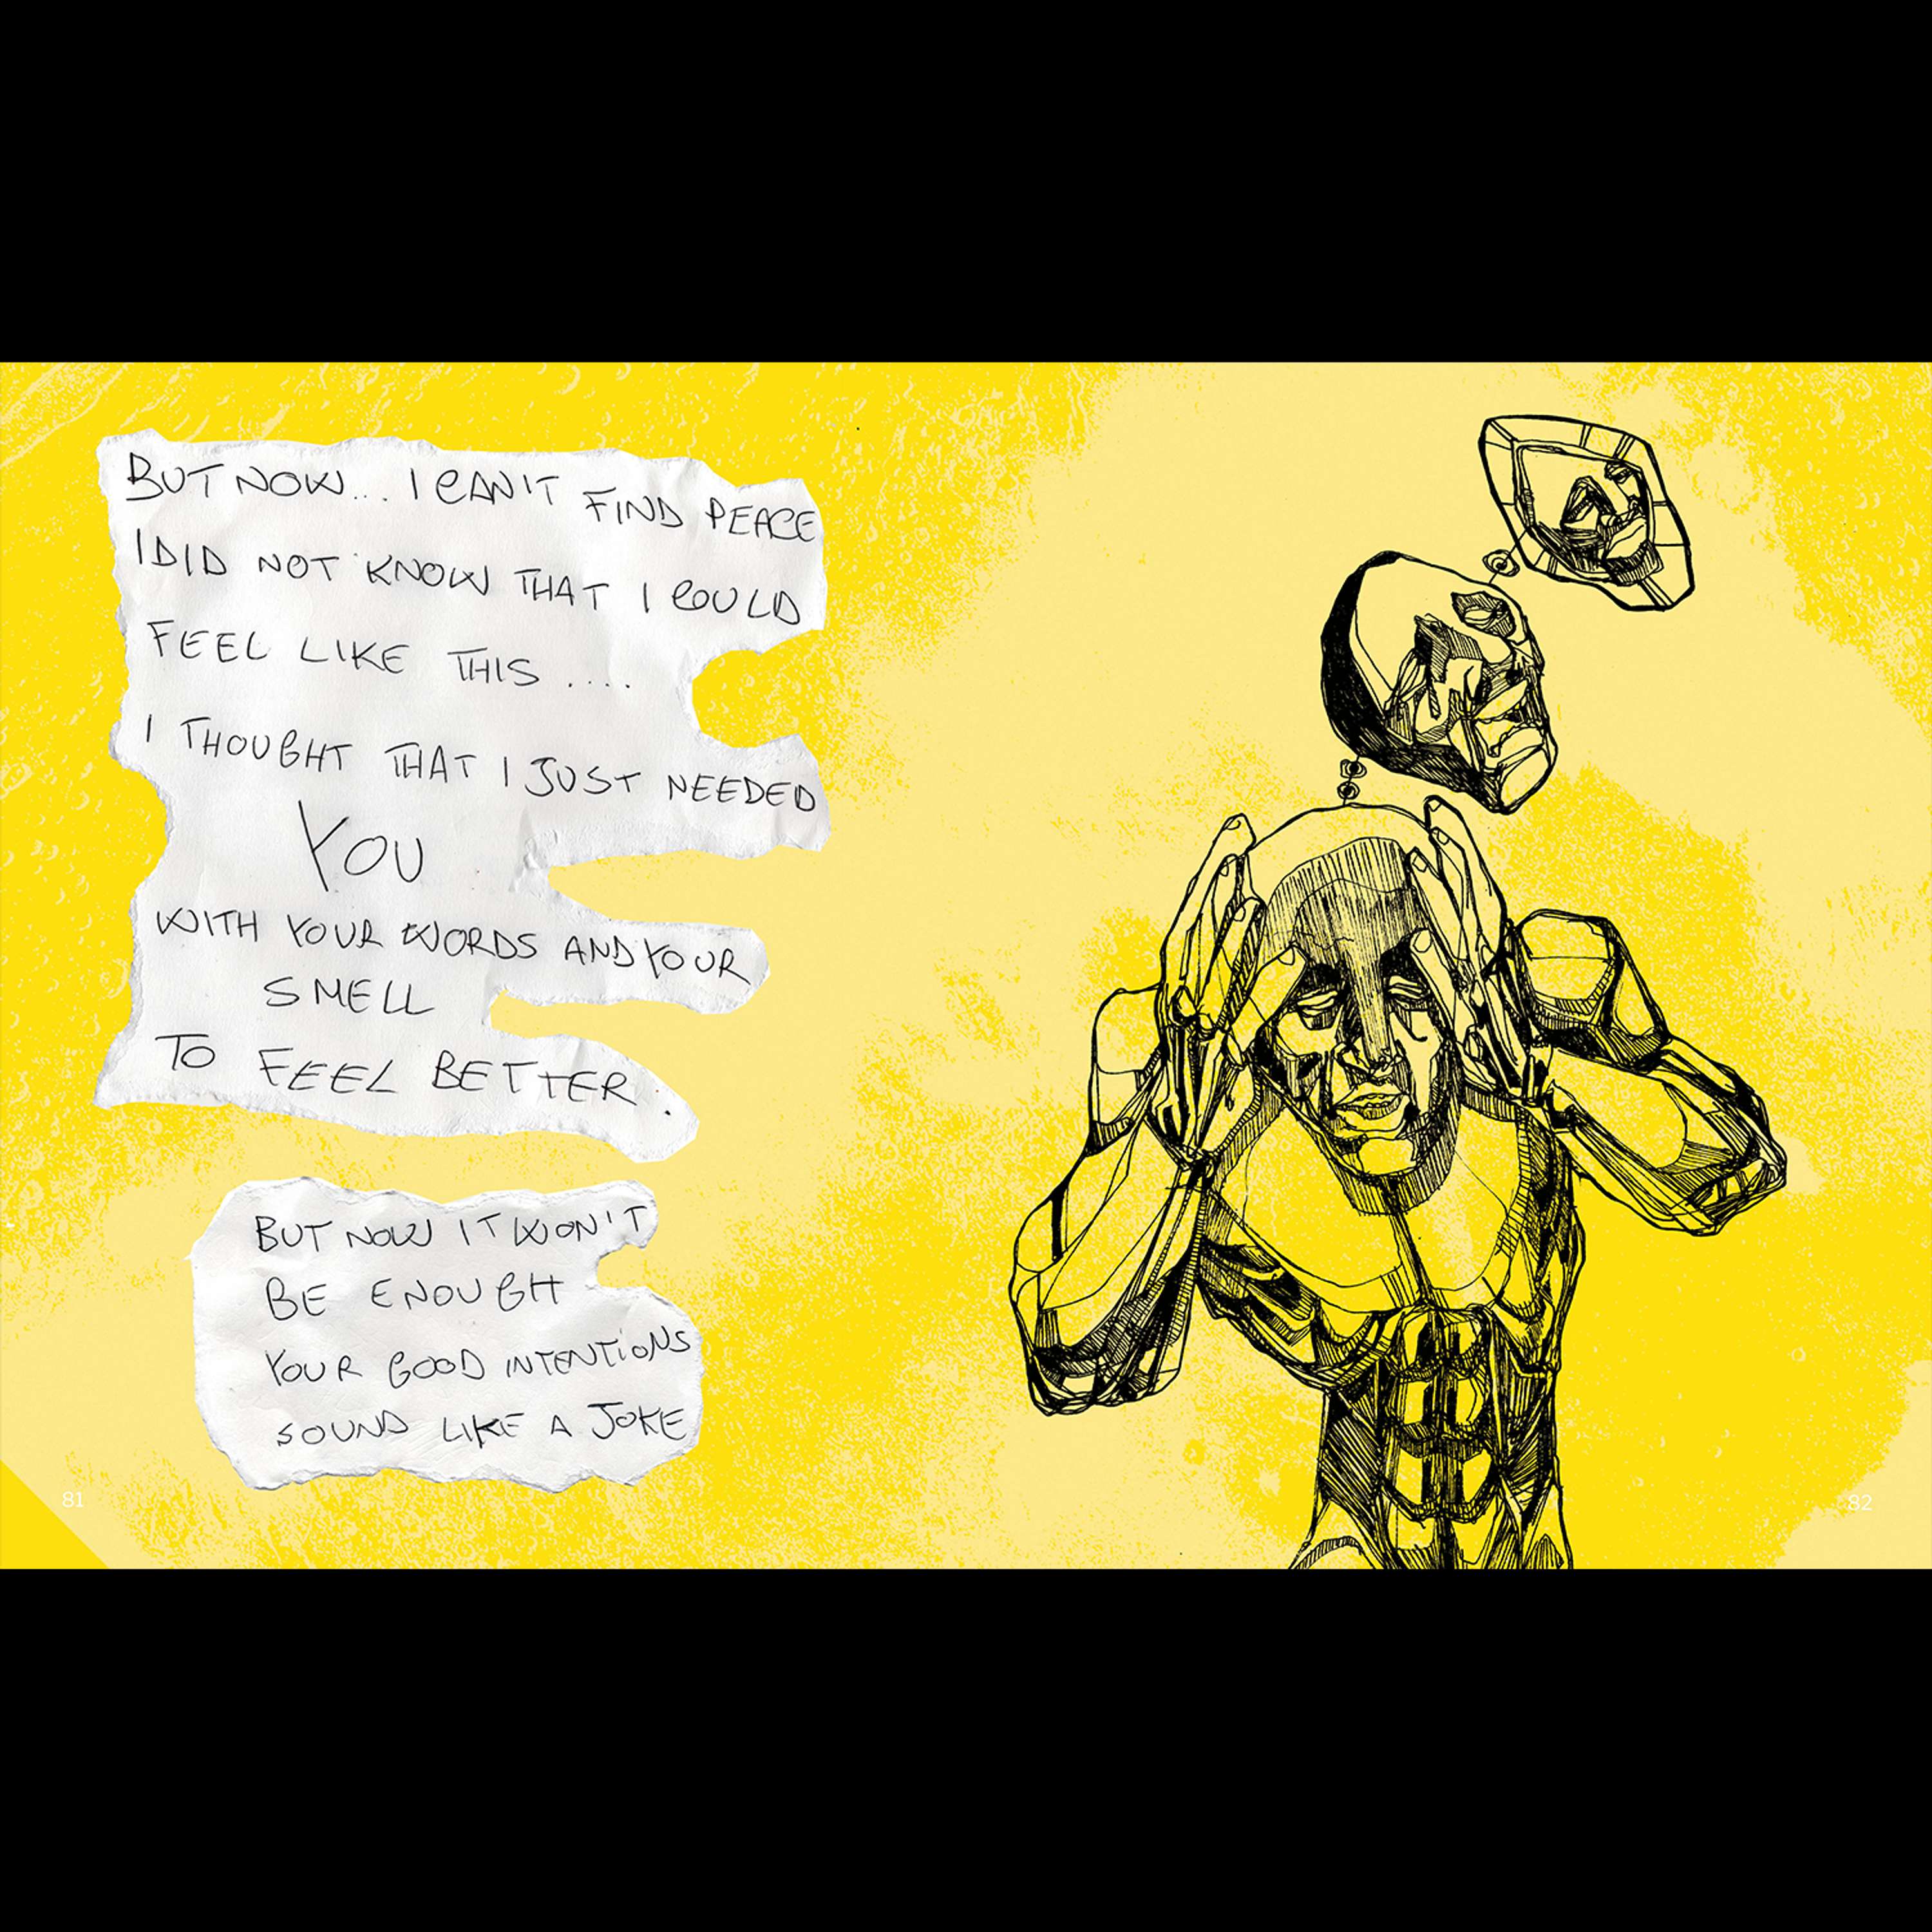 BUT NOW... I CAN'T FIND PEACE
I DID NOT KNOW THAT I COULD
FEEL LIKE THIS ....
I THOUGHT THAT I JUST NEEDED
YOU
WITH YOUR WORDS AND YOUR
SMELL
TO FEEL BETTER.
BUT NOW IT WON'T
BE ENOUGH
YOUR GOOD INTENTIONS
SOUND LIKE A JOKE
81
82